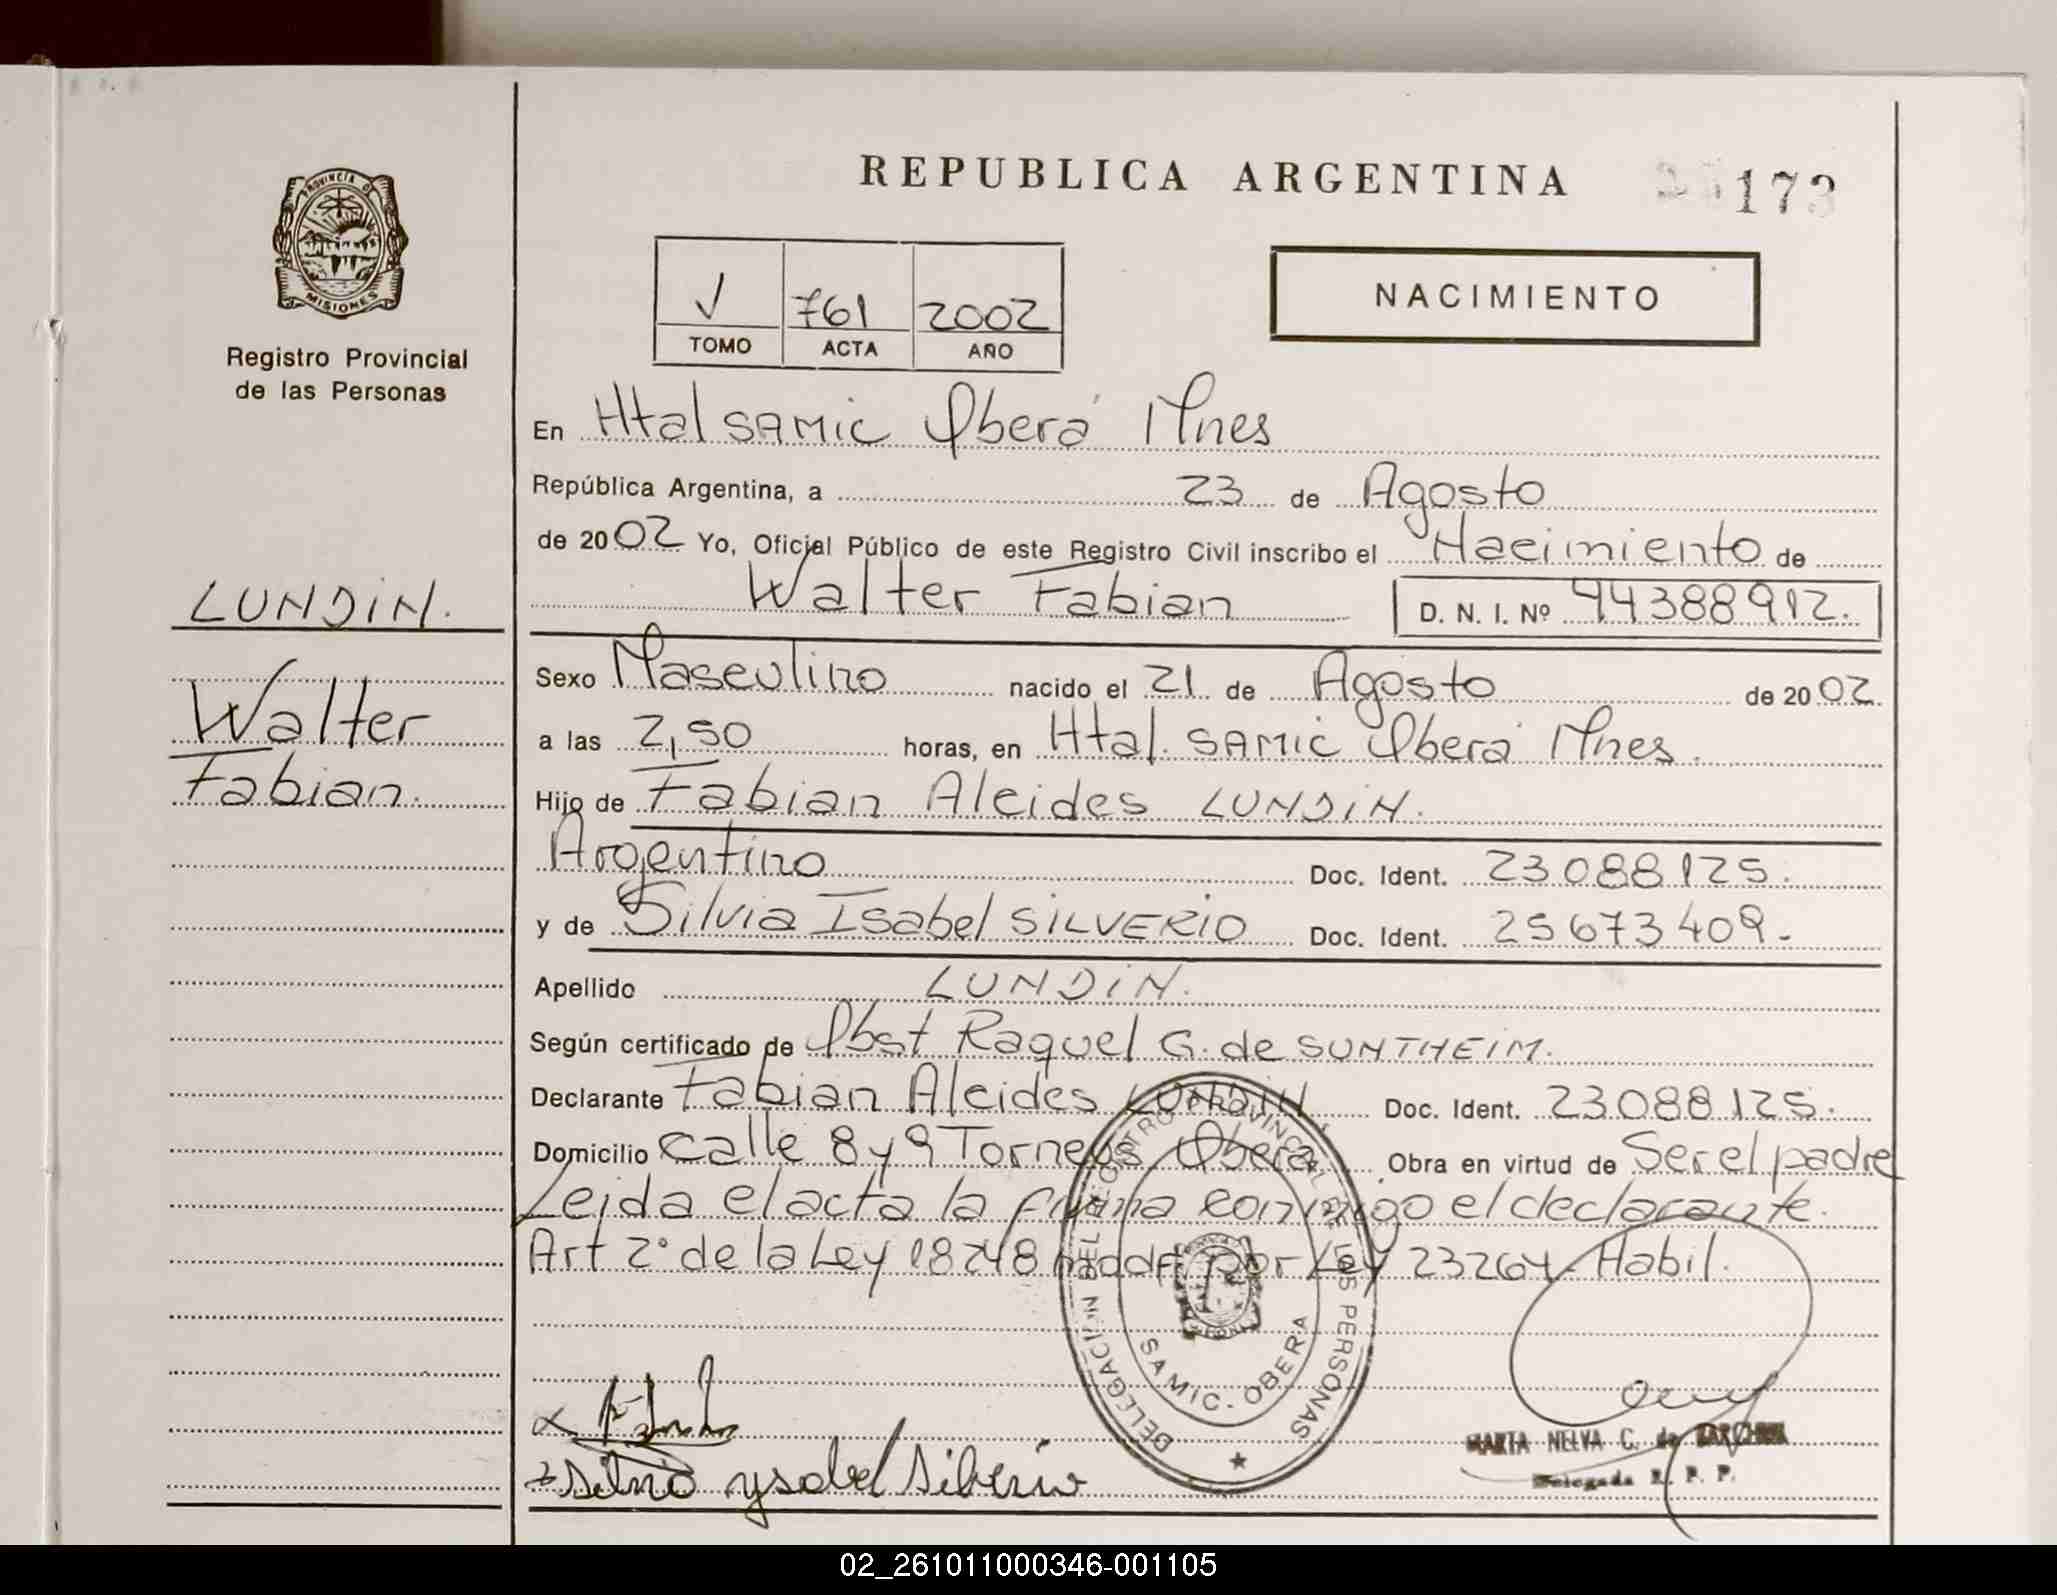 REPUBLICA ARGENTINA
173
PROVINCIA DE
MISIONES
Registro Provincial
de las Personas
V 761 2002
TOMO ACTA AÑO
NACIMIENTO
En Htal SAMIC Oberá Mnes
República Argentina, a 23 de Agosto
de 2002 Yo, Oficial Público de este Registro Civil inscribo el Nacimiento de
Walter Fabian D. N. I. Nº 44388912.
LUNDIN.
Walter
Fabian.
Sexo Masculino nacido el 21 de Agosto de 2002
a las 2,50 horas, en Htal. SAMIC Oberá Mnes.
Hijo de Fabian Alcides LUNDIN.
Argentino Doc. Ident. 23088125.
y de Silvia Isabel SILVERIO Doc. Ident. 25673409.
Apellido LUNDIN.
Según certificado de Obst Raquel G. de SUNTHEIM.
Declarante Fabian Alcides LUNDIN, Doc. Ident. 23088125.
Domicilio Calle 8 y 9 Torneus Oberá, Obra en virtud de Ser el padre
Leida el acta la firma conmigo el declarante.
Art 2° de la Ley 18248 modf por Ley 23264. Habil.
DELEGACION DEL REGISTRO PROVINCIAL DE LAS PERSONAS
SAMIC. OBERA
Silvia ysabel Silberio
MARTA NELVA C. de
Delegada R. P. P.
02_261011000346-001105